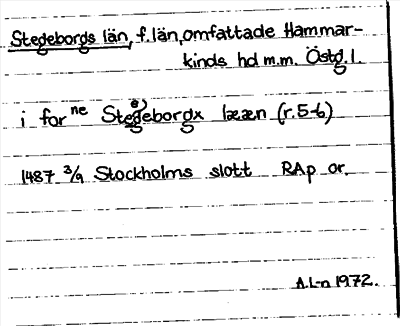 Stegeborgs län, f. län, omfattade Hammar-
kinds hd m.m. Östg. l.
i for ne Stegeborgx lææn (r. 5-6)
1487 3/9 Stockholms slott RAp or.
A.L-n 1972.